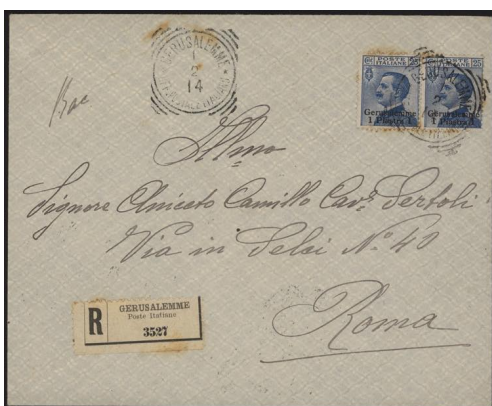 GERUSALEMME
1
2
14
POSTE ITALIANE
Gerusalemme
1 Piastra 1
Gerusalemme
1 Piastra 1
Racc
Ill.mo
Signore Aniceto Camillo Cav.r Sertoli
Via in Selci N.o 40
Roma
R
GERUSALEMME
Poste Italiane
3527